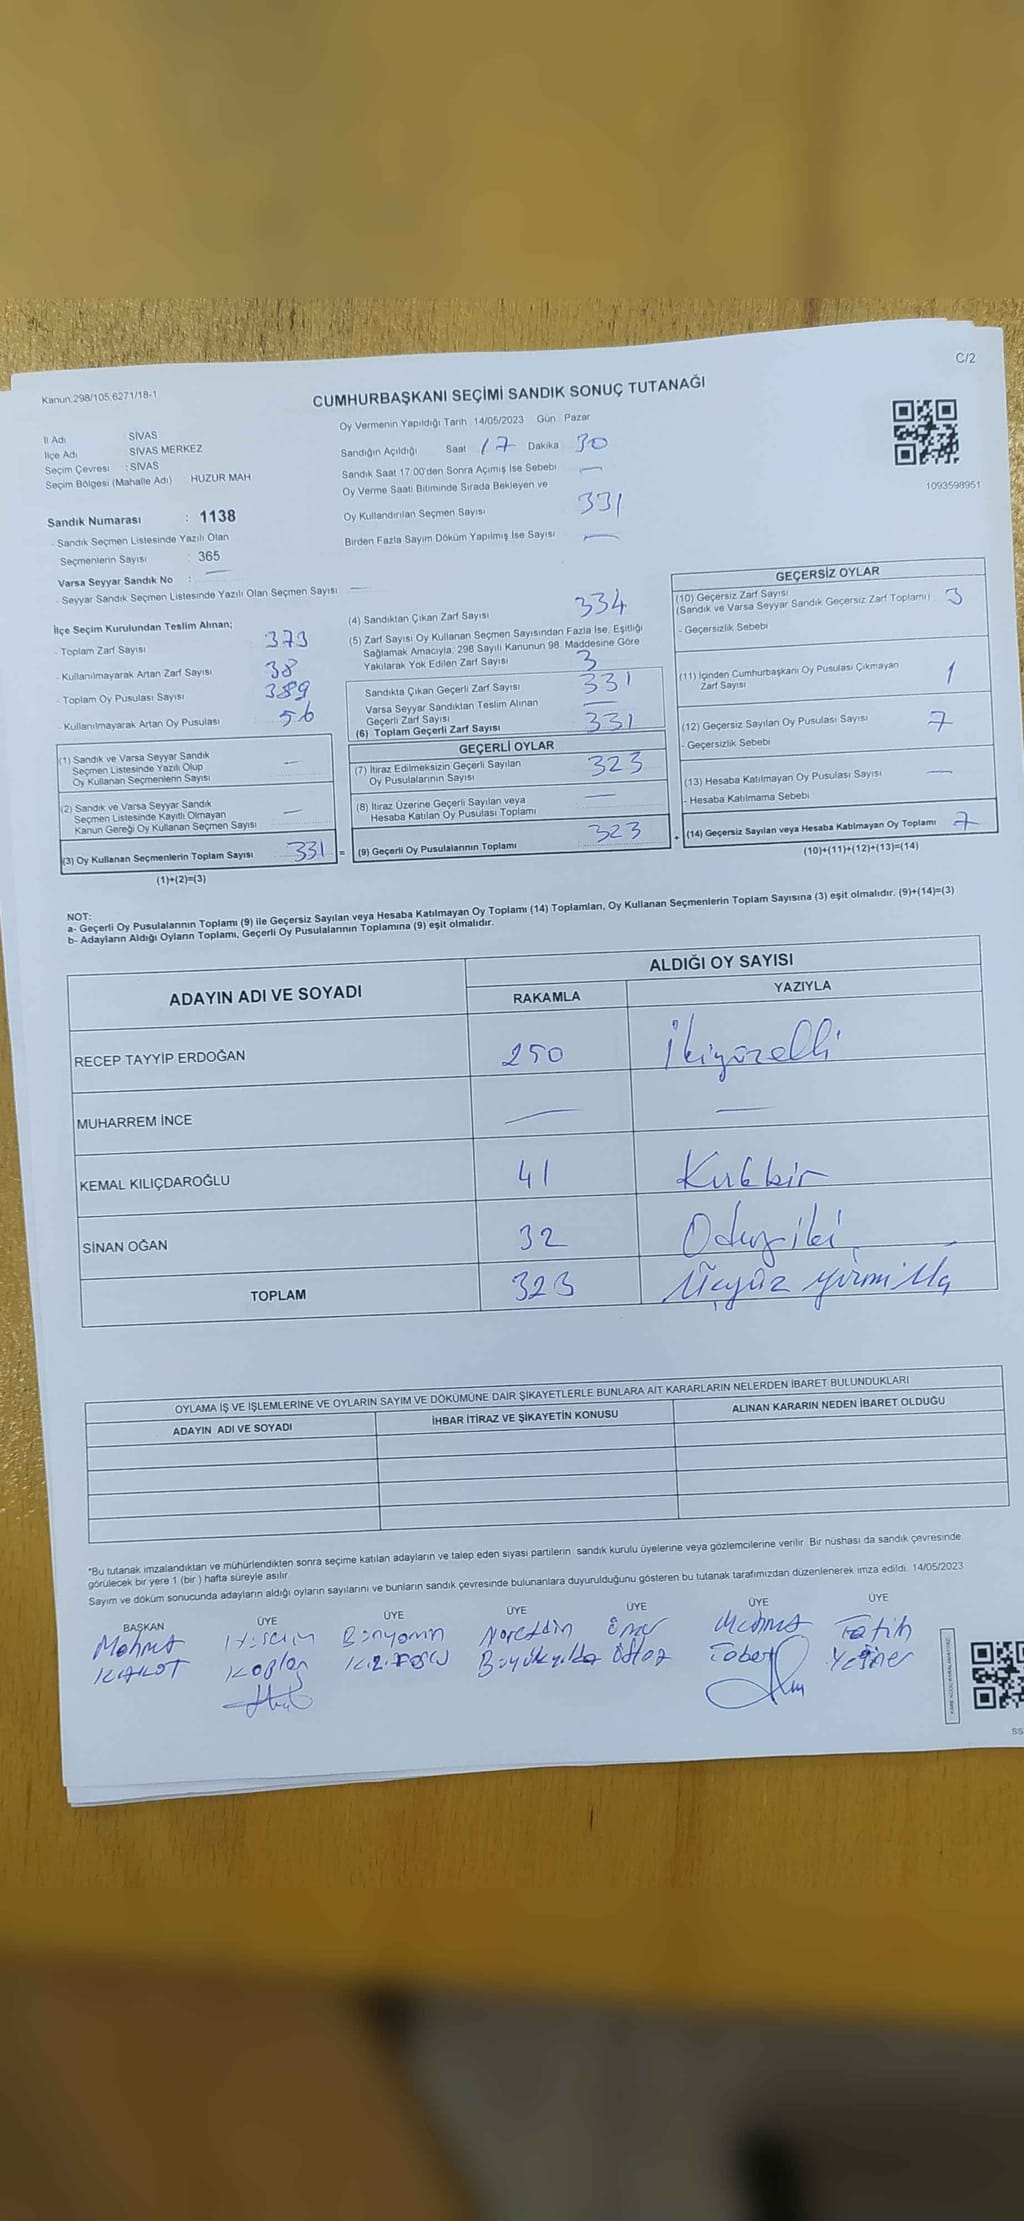 C/2
Kanun.298/105.6271/18-1
CUMHURBAŞKANI SEÇİMİ SANDIK SONUÇ TUTANAĞI
İl Adı SİVAS
İlçe Adı SİVAS MERKEZ
Seçim Çevresi : SİVAS
Seçim Bölgesi (Mahalle Adı) HUZUR MAH
Sandık Numarası : 1138
- Sandık Seçmen Listesinde Yazılı Olan
Seçmenlerin Sayısı : 365
Varsa Seyyar Sandık No : —
- Seyyar Sandık Seçmen Listesinde Yazılı Olan Seçmen Sayısı —
Oy Vermenin Yapıldığı Tarih 14/05/2023 Gün Pazar
Sandığın Açıldığı Saat 17 Dakika 30
Sandık Saat 17:00'den Sonra Açımış İse Sebebi —
Oy Verme Saati Bitiminde Sırada Bekleyen ve
Oy Kullandırılan Seçmen Sayısı 331
Birden Fazla Sayım Döküm Yapılmış İse Sayısı —
1093598951
İlçe Seçim Kurulundan Teslim Alınan;
- Toplam Zarf Sayısı 373
- Kullanılmayarak Artan Zarf Sayısı 38
- Toplam Oy Pusulası Sayısı 389
- Kullanılmayarak Artan Oy Pusulası 56
(1) Sandık ve Varsa Seyyar Sandık
Seçmen Listesinde Yazılı Olup
Oy Kullanan Seçmenlerin Sayısı —
(2) Sandık ve Varsa Seyyar Sandık
Seçmen Listesinde Kayıtlı Olmayan
Kanun Gereği Oy Kullanan Seçmen Sayısı —
(3) Oy Kullanan Seçmenlerin Toplam Sayısı 331 =
(1)+(2)=(3)
(4) Sandıktan Çıkan Zarf Sayısı 334
(5) Zarf Sayısı Oy Kullanan Seçmen Sayısından Fazla İse, Eşitliği
Sağlamak Amacıyla; 298 Sayılı Kanunun 98. Maddesine Göre
Yakılarak Yok Edilen Zarf Sayısı 3
Sandıkta Çıkan Geçerli Zarf Sayısı 331
Varsa Seyyar Sandıktan Teslim Alınan
Geçerli Zarf Sayısı —
(6) Toplam Geçerli Zarf Sayısı 331
GEÇERLİ OYLAR
(7) İtiraz Edilmeksizin Geçerli Sayılan
Oy Pusulalarının Sayısı 323
(8) İtiraz Üzerine Geçerli Sayılan veya
Hesaba Katılan Oy Pusulası Toplamı —
(9) Geçerli Oy Pusulalarının Toplamı 323 +
GEÇERSİZ OYLAR
(10) Geçersiz Zarf Sayısı
(Sandık ve Varsa Seyyar Sandık Geçersiz Zarf Toplamı) 3
- Geçersizlik Sebebi
(11) İçinden Cumhurbaşkanı Oy Pusulası Çıkmayan
Zarf Sayısı 1
(12) Geçersiz Sayılan Oy Pusulası Sayısı 7
- Geçersizlik Sebebi
(13) Hesaba Katılmayan Oy Pusulası Sayısı —
- Hesaba Katılmama Sebebi
(14) Geçersiz Sayılan veya Hesaba Katılmayan Oy Toplamı 7
(10)+(11)+(12)+(13)=(14)
NOT:
a- Geçerli Oy Pusulalarının Toplamı (9) ile Geçersiz Sayılan veya Hesaba Katılmayan Oy Toplamı (14) Toplamları, Oy Kullanan Seçmenlerin Toplam Sayısına (3) eşit olmalıdır. (9)+(14)=(3)
b- Adayların Aldığı Oyların Toplamı, Geçerli Oy Pusulalarının Toplamına (9) eşit olmalıdır.
ADAYIN ADI VE SOYADI ALDIĞI OY SAYISI
RAKAMLA YAZIYLA
RECEP TAYYİP ERDOĞAN 250 İkiyüzelli
MUHARREM İNCE — —
KEMAL KILIÇDAROĞLU 41 Kırkbir
SİNAN OĞAN 32 Otuziki
TOPLAM 323 Üçyüz yirmi üç
OYLAMA İŞ VE İŞLEMLERİNE VE OYLARIN SAYIM VE DÖKÜMÜNE DAİR ŞİKAYETLERLE BUNLARA AİT KARARLARIN NELERDEN İBARET BULUNDUKLARI
ADAYIN ADI VE SOYADI İHBAR İTİRAZ VE ŞİKAYETİN KONUSU ALINAN KARARIN NEDEN İBARET OLDUĞU
*Bu tutanak imzalandıktan ve mühürlendikten sonra seçime katılan adayların ve talep eden siyasi partilerin sandık kurulu üyelerine veya gözlemcilerine verilir. Bir nüshası da sandık çevresinde
görülecek bir yere 1 (bir ) hafta süreyle asılır.
Sayım ve döküm sonucunda adayların aldığı oyların sayılarını ve bunların sandık çevresinde bulunanlara duyurulduğunu gösteren bu tutanak tarafımızdan düzenlenerek imza edildi. 14/05/2023
BAŞKAN ÜYE ÜYE ÜYE ÜYE ÜYE ÜYE
Mehmet Hüseyin Bünyamin Nurettin Ömer Mehmet Fatih